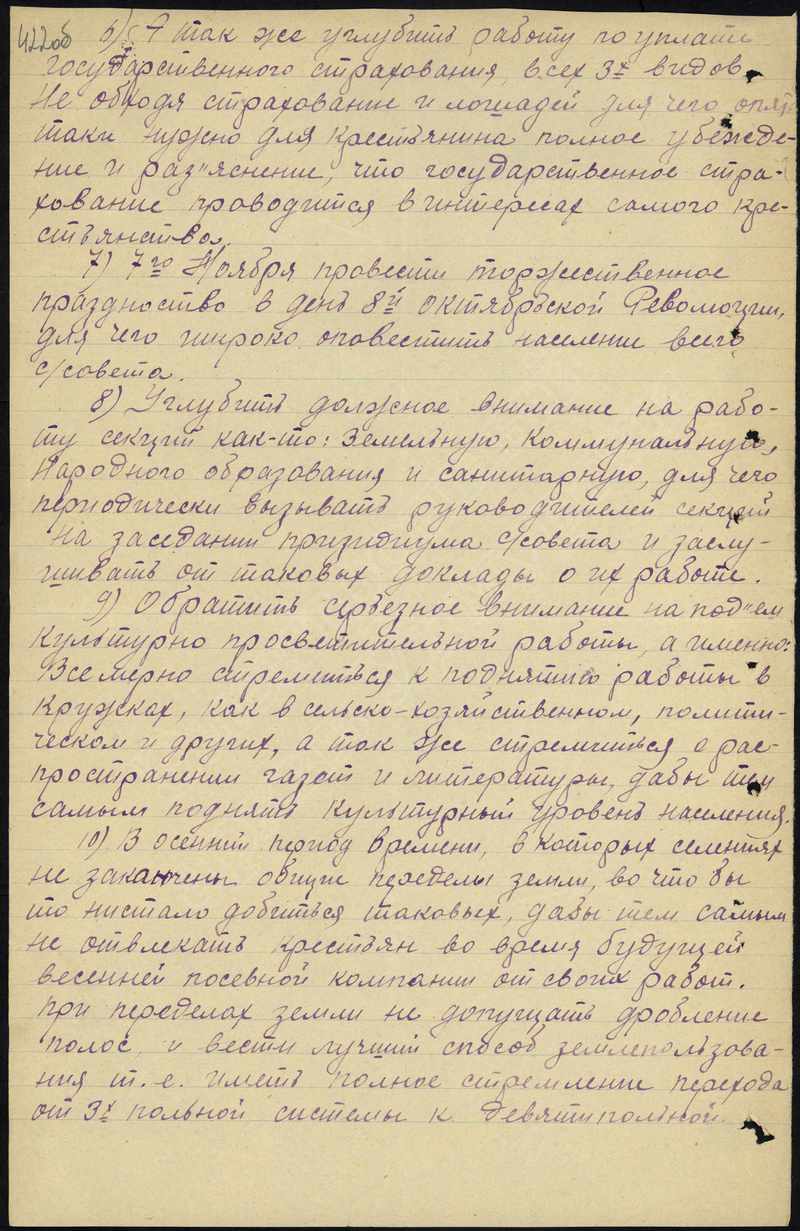 422об
6) А так же углубить работу по уплате
государственного страхования всех 3х видов,
не обходя страхование и лошадей для чего опять
таки нужно для крестьянина полное убежде-
ние и раз"яснение, что государственное стра-
хование проводится в интересах самого кре-
стьянства.
7) 7го Ноября провести торжественное
праздноство в день 8й Октябрьской Революции,
для чего широко оповестить население всего
с/совета.
8) Углубить должное внимание на рабо-
ту секций как-то: Земельную, Коммунальную,
Народного образования и санитарную, для чего
периодически вызывать руководителей секций
на заседании призидиума с/совета и заслу-
шивать от таковых доклады о их работе.
9) Обратить серьезное внимание на под"ем
культурно просветительной работы, а именно:
Всемерно стремиться к поднятию работы в
кружках, как в сельско-хозяйственном, полити-
ческом и других, а так же стремиться о рас-
пространении газет и литературы, дабы тем
самым поднять культурный уровень населения.
10) В осенний период времени, в которых селениях
не закончены общие переделы земли, во что бы
то нистало добиться таковых, дабы тем самым
не отвлекать крестьян во время будущей
весенней посевной компании от своих работ.
При переделах земли не допущать дробление
полос и вести лучший способ землепользова-
ния т.е. иметь полное стремление перехода
от 3х польной системы к девятипольной.